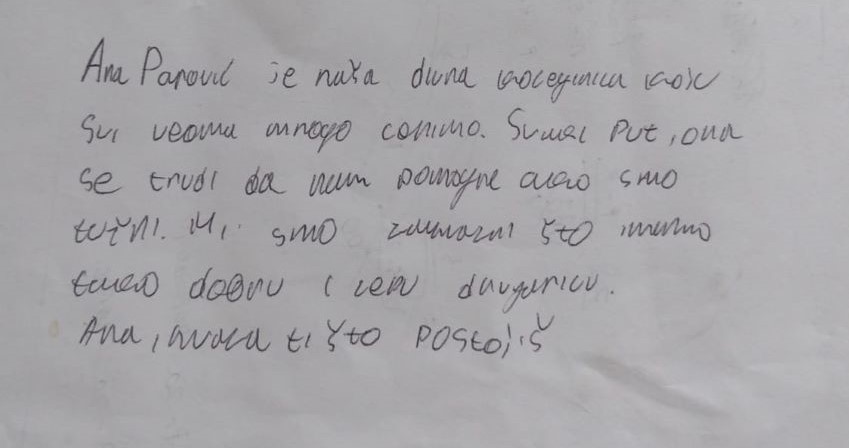 Ana Panović je naša divna koleginica koju
svi veoma mnogo cenimo. Svaki put, ona
se trudi da nam pomogne ako smo
tužni. Mi smo zahvalni što imamo
tako dobru i lepu drugaricu.
Ana, hvala ti što postojiš